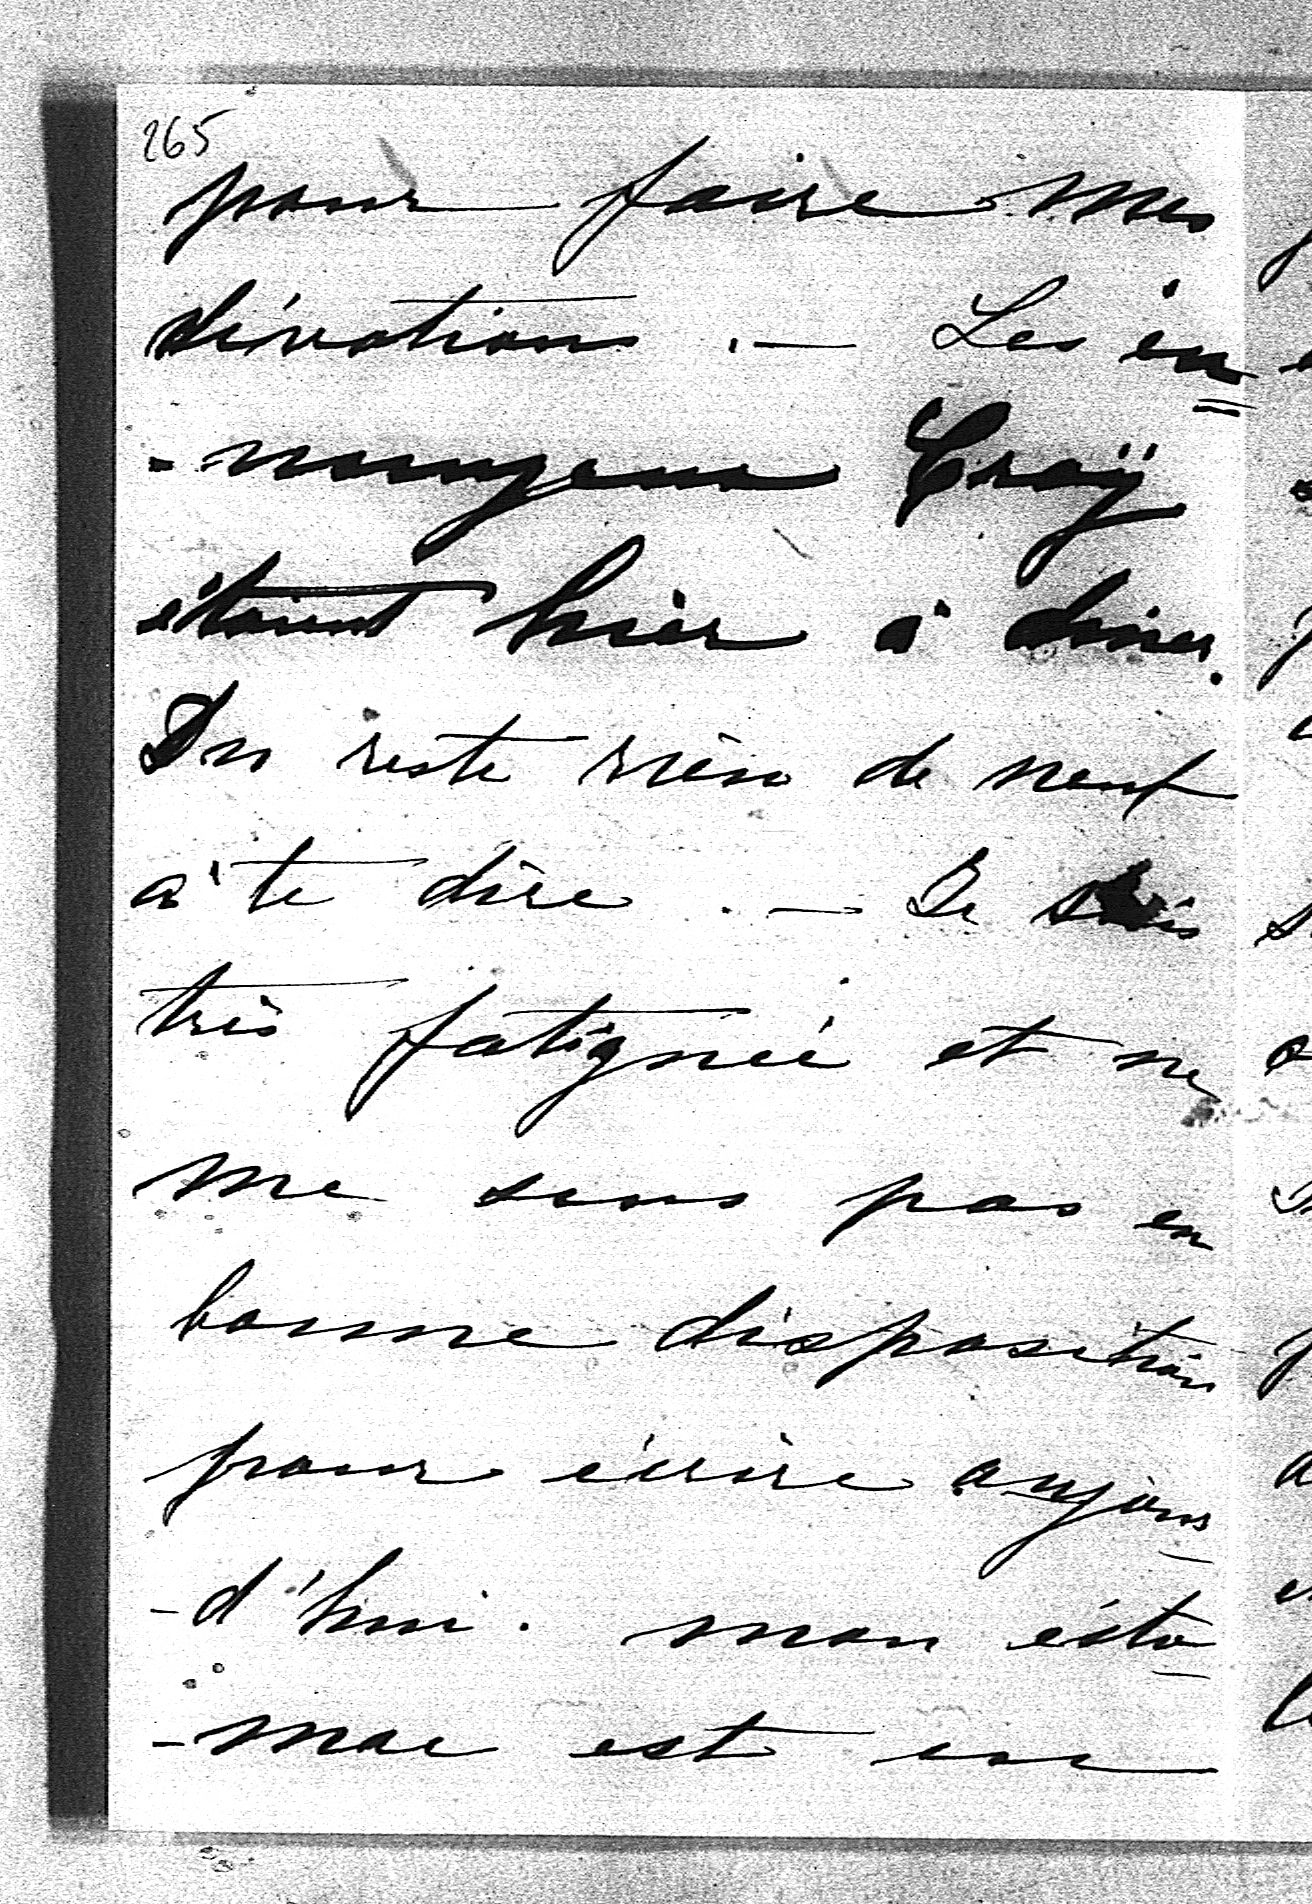 265
pour faire mes
dévotions. — Les en=
-nuyeux Croÿ
étaient hier à diner.
Du reste rien de neuf
à te dire. — Je suis
très fatiguée et ne
me sens pas en
bonne disposition
pour écrire aujour-
-d'hui. mon esto-
-mac est en